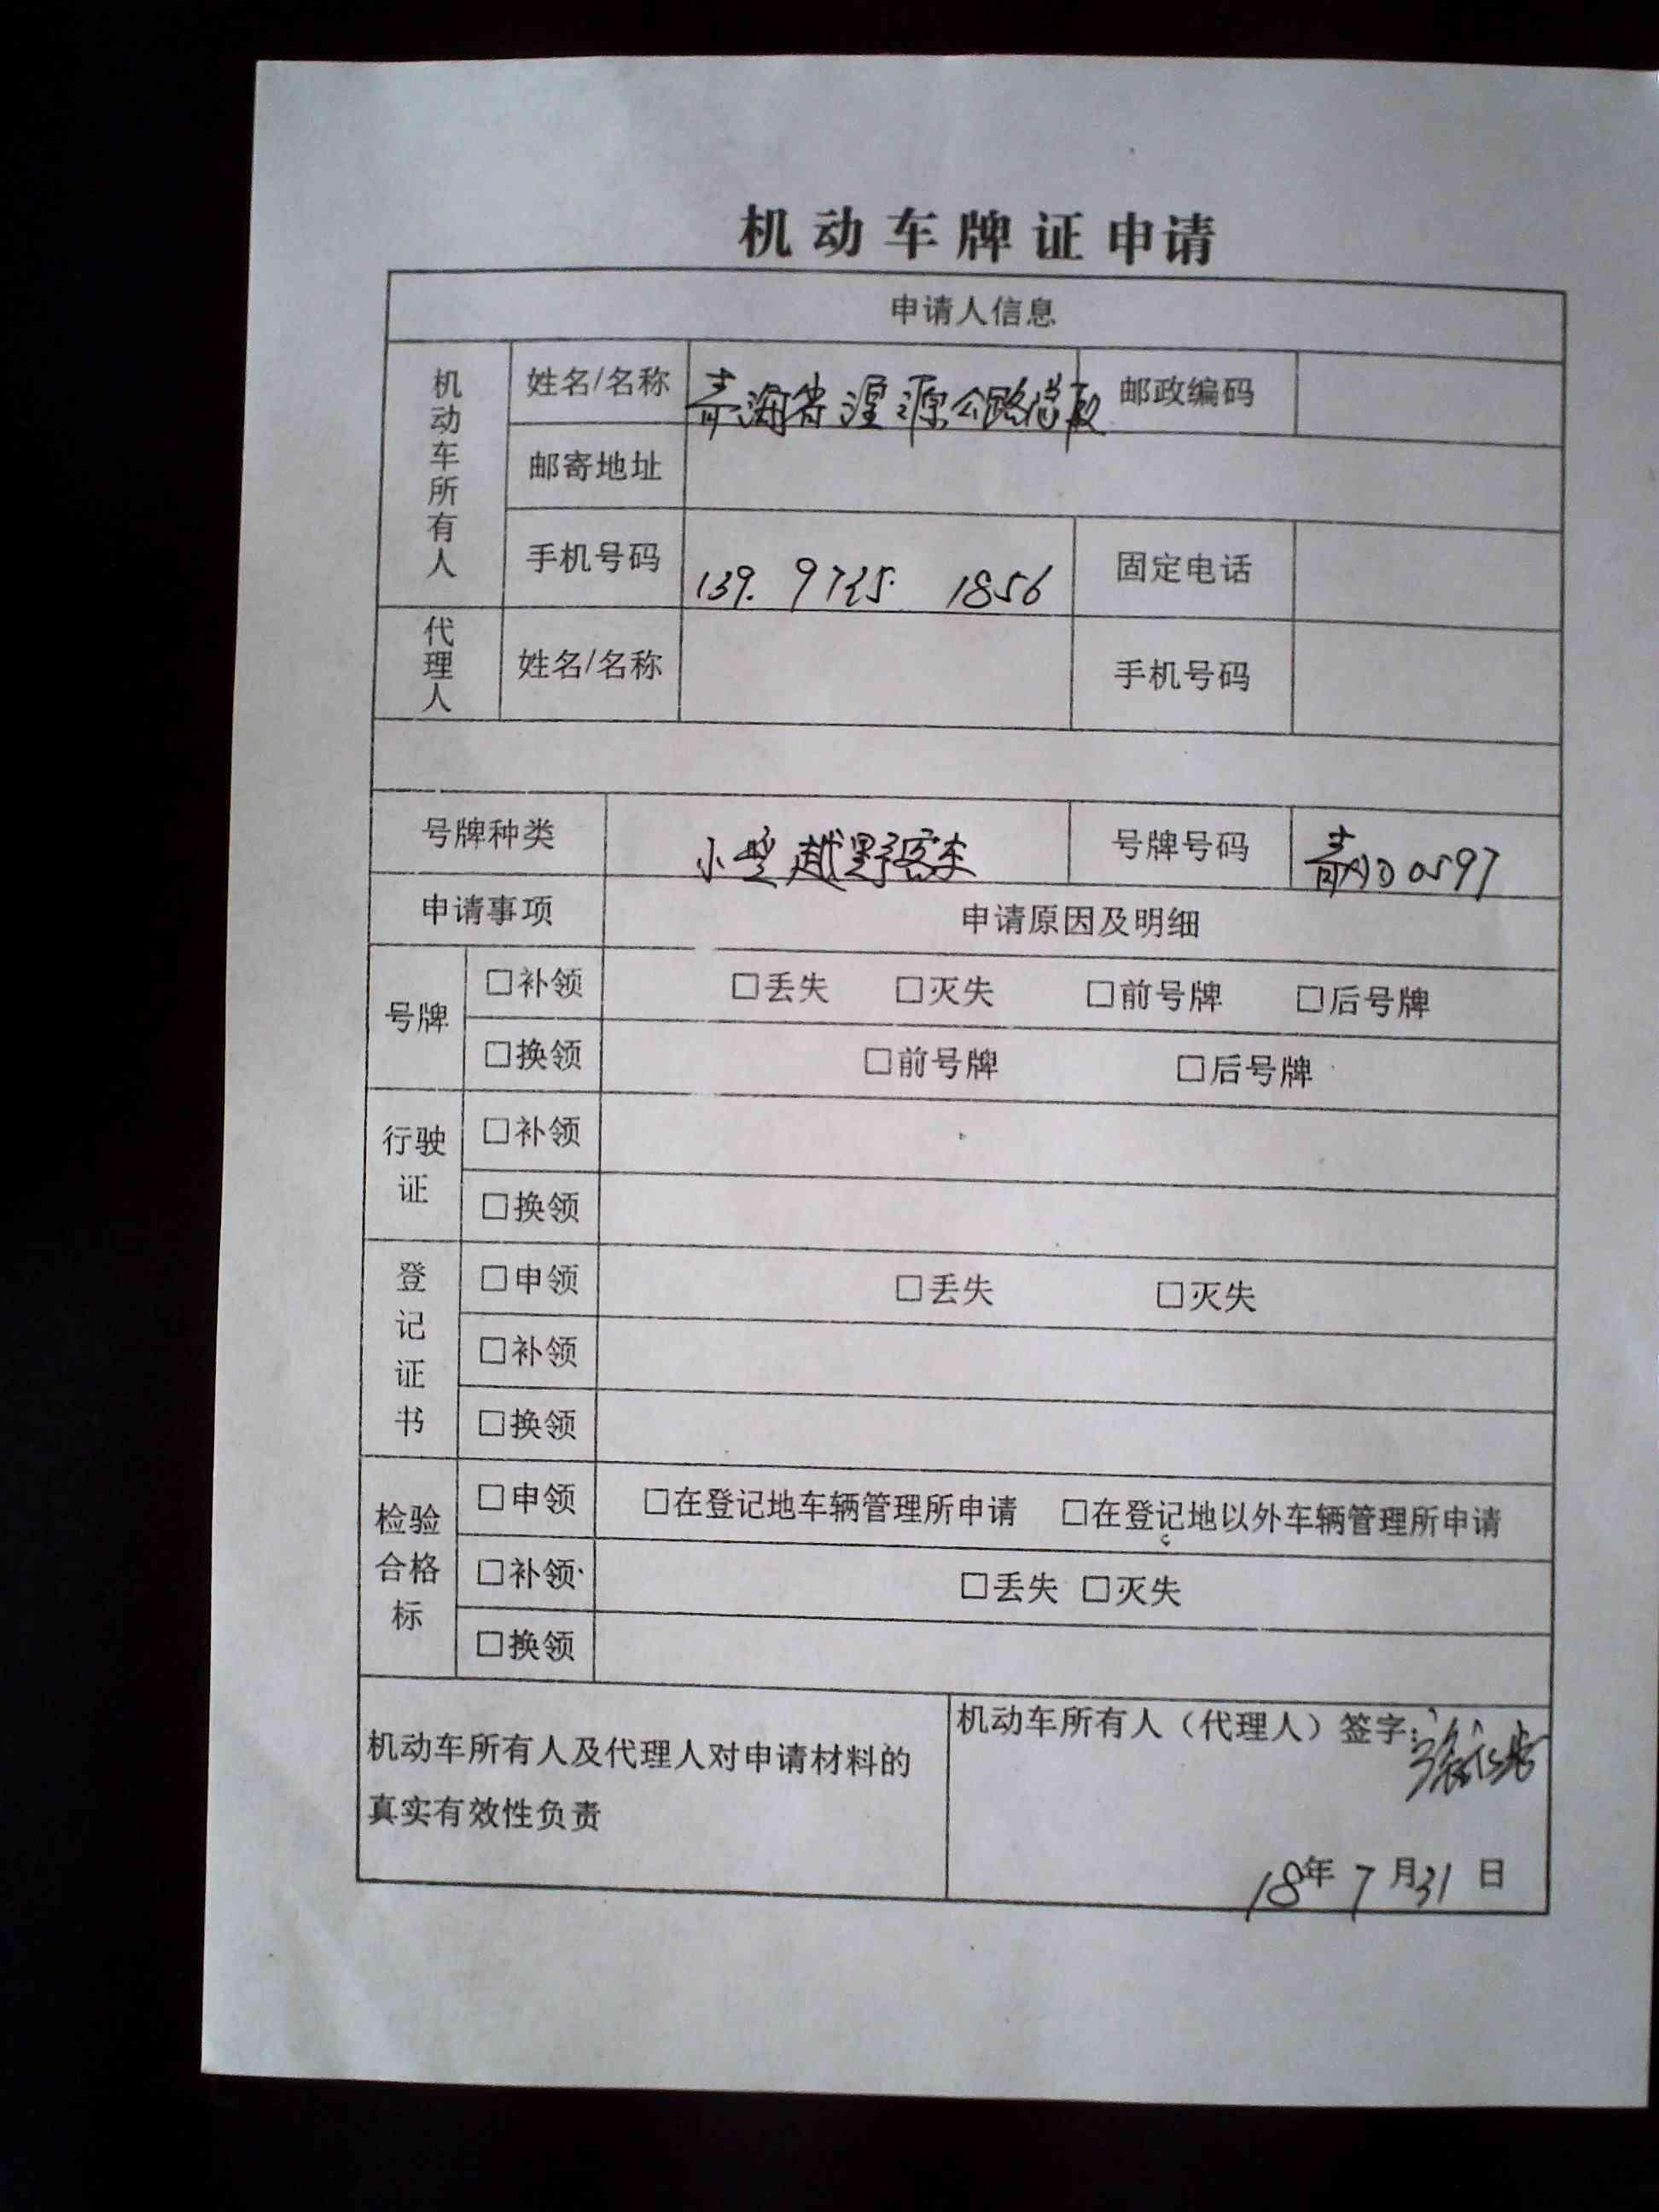 机动车牌证申请
申请人信息
机动车所有人
姓名/名称 青海省湟源公路总段 邮政编码
邮寄地址
手机号码 139. 9725. 1856 固定电话
代理人
姓名/名称 手机号码
号牌种类 小型越野客车 号牌号码 青AD0597
申请事项 申请原因及明细
号牌
□补领 □丢失 □灭失 □前号牌 □后号牌
□换领 □前号牌 □后号牌
行驶证
□补领
□换领
登记证书
□申领 □丢失 □灭失
□补领
□换领
检验合格标
□申领 □在登记地车辆管理所申请 □在登记地以外车辆管理所申请
□补领 □丢失 □灭失
□换领
机动车所有人及代理人对申请材料的
真实有效性负责
机动车所有人（代理人）签字:
18年7月31日